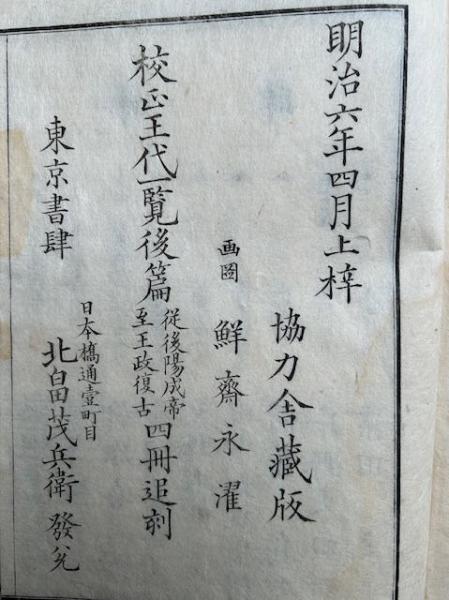 明治六年四月上梓
協力舎藏版
画圖 鮮齋永濯
校正王代一覧後篇 從後陽成帝至王政復古 四冊追刻
東京書肆 日本橋通壹町目 北畠茂兵衛 發兌